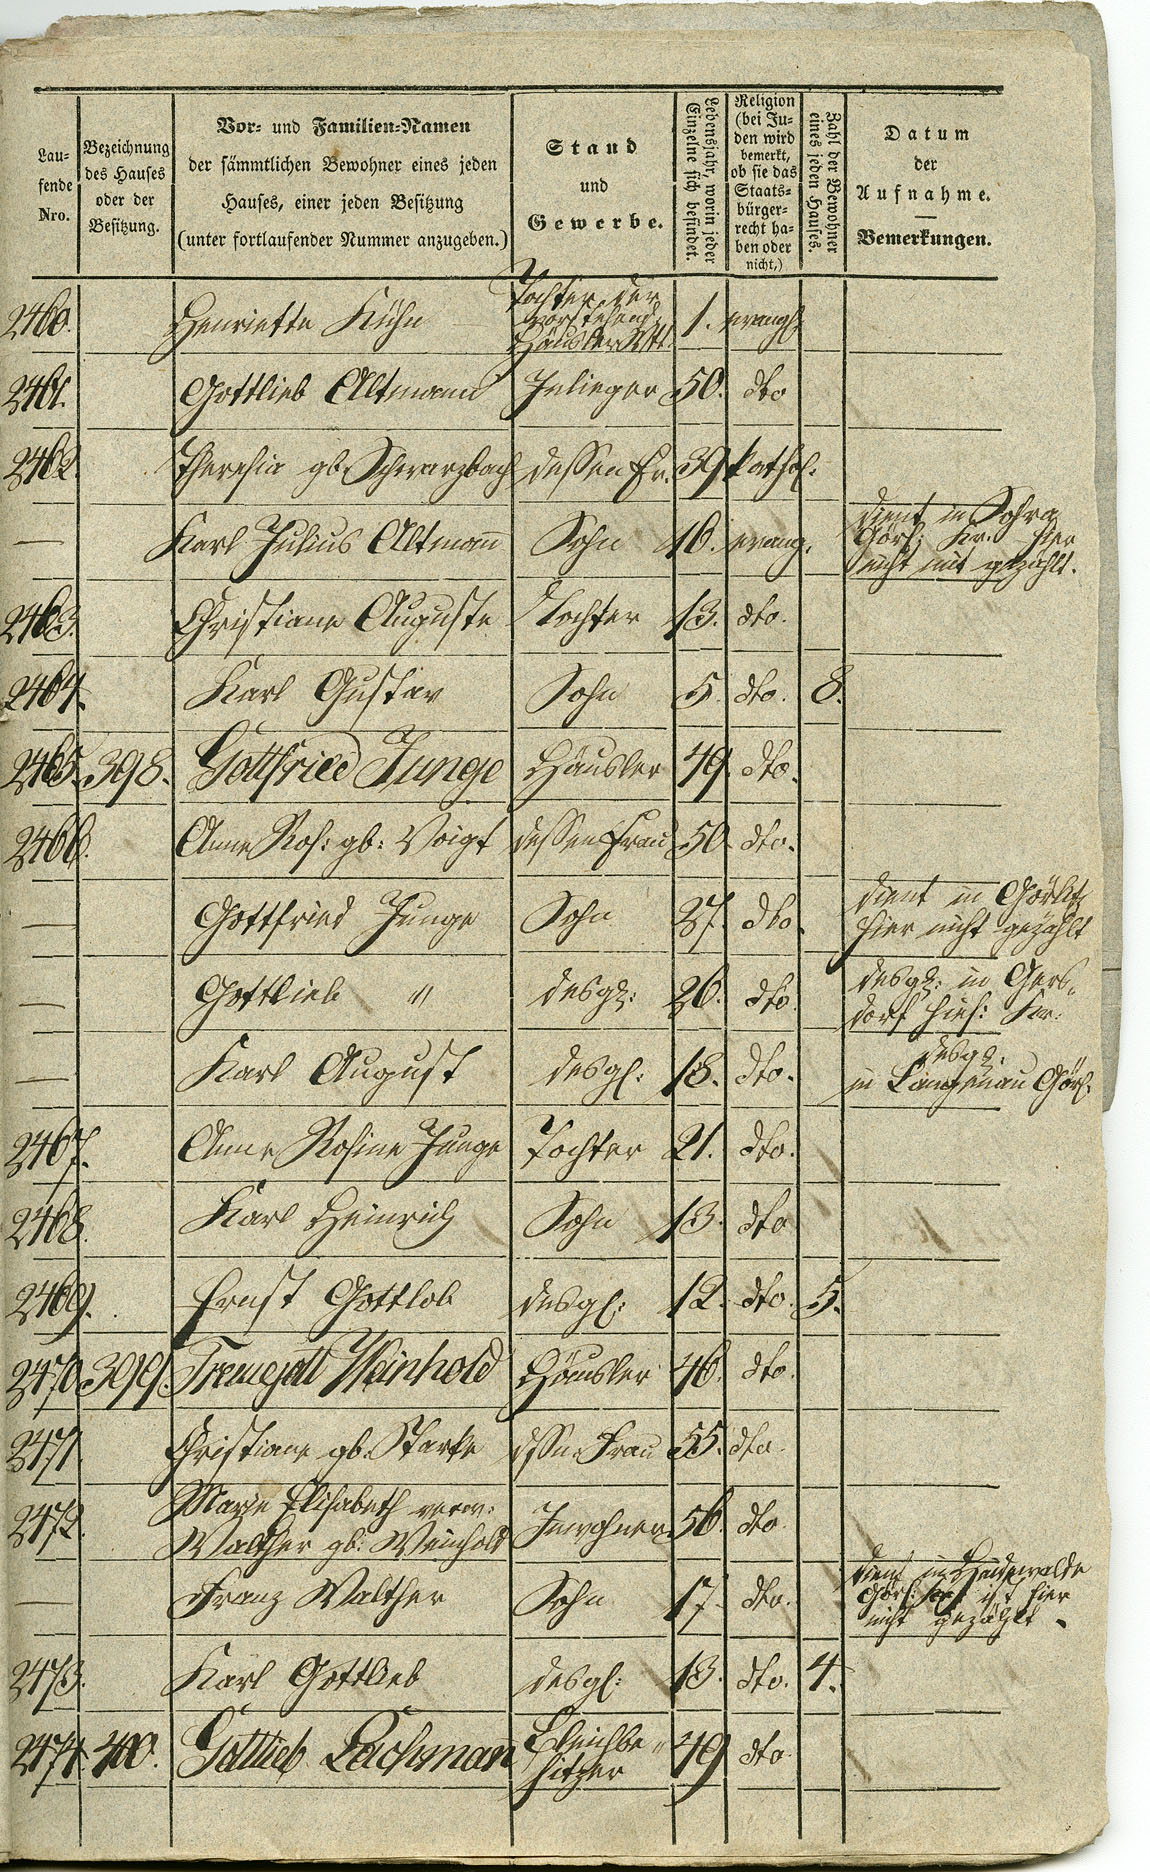 Lau-
fende
Nro.
Bezeichnung
des Hauses
oder der
Besitzung.
Vor- und Familien-Namen
der sämmtlichen Bewohner eines jeden
Hauses, einer jeden Besitzung
(unter fortlaufender Nummer anzugeben.)
Stand
und
Gewerbe.
Lebensjahr, worin jeder
Einzelne sich befindet.
Religion
(bei Ju-
den wird
bemerkt,
ob sie das
Staats-
bürger-
recht ha-
ben oder
nicht.)
Zahl der Bewohner
eines jeden Hauses.
Datum
der
Aufnahme.
—
Bemerkungen.
Tochter der
vorstehend.
Häusler
2460. Henriette Kühn 1. evangl.
2461. Gottlieb Altmann Inlieger 50. dto
2462. Theresia gb. Schwarzbach dessen Fr. 39 kathol.
— Karl Julius Altmann Sohn 16. evang. dient in Sohra
Görl: Kr. hier
nicht mit gezählt.
2463. Christiane Auguste Tochter 13. dto.
2464. Karl Gustav Sohn 5. dto. 8.
2465. 398. Gottfried Junge Häusler 49. dto.
2466. Anne Ros: gb: Voigt dessen Frau 50. dto.
— Gottfried Junge Sohn 27. dto. dient in Görlitz
hier nicht gezählt
— Gottlieb " desgl: 26. dto. desgl: in Gers-
dorf hies: Kr.
— Karl August desgl: 18. dto. desgl.
in Langenau Görl.
2467. Anne Rosine Junge Tochter 21. dto.
2468. Karl Heinrich Sohn 13. dto
2469. Ernst Gottlob desgl: 12. dto. 5.
2470. 399. Traugott Weinhold Häusler 46. dto.
2471. Christiane gb. Starke dssn Frau 55. dto.
2472. Marie Elisabeth verw:
Walther gb: Weinhold Inwohner 56. dto.
— Franz Walther Sohn 17. dto. dient in Heidewalde
Görl: ist hier
nicht gezählt.
2473. Karl Gottlieb desgl: 13. dto. 4.
2474. 400. Gottlieb Lachman Bleichbe-
sitzer 49 dto